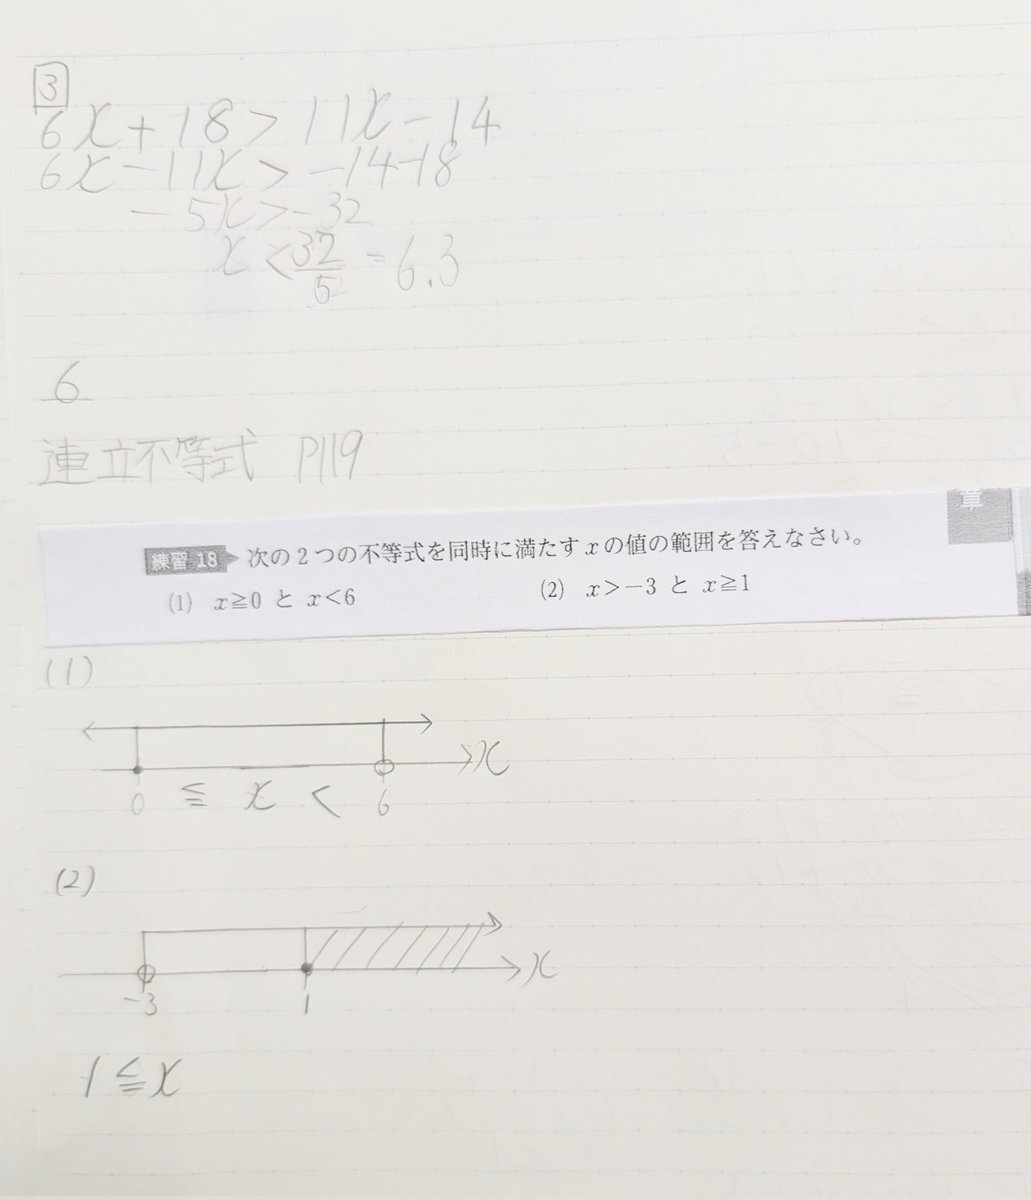 3
6x+18>11x-14
6x-11x>-14-18
-5x>-32
x<32/5=6.3
6
連立不等式 P119
章
練習 18 次の2つの不等式を同時に満たすxの値の範囲を答えなさい。
(1) x≧0 と x<6 (2) x>-3 と x≧1
(1)
x
0 ≦ x < 6
(2)
x
-3 1
1≦x